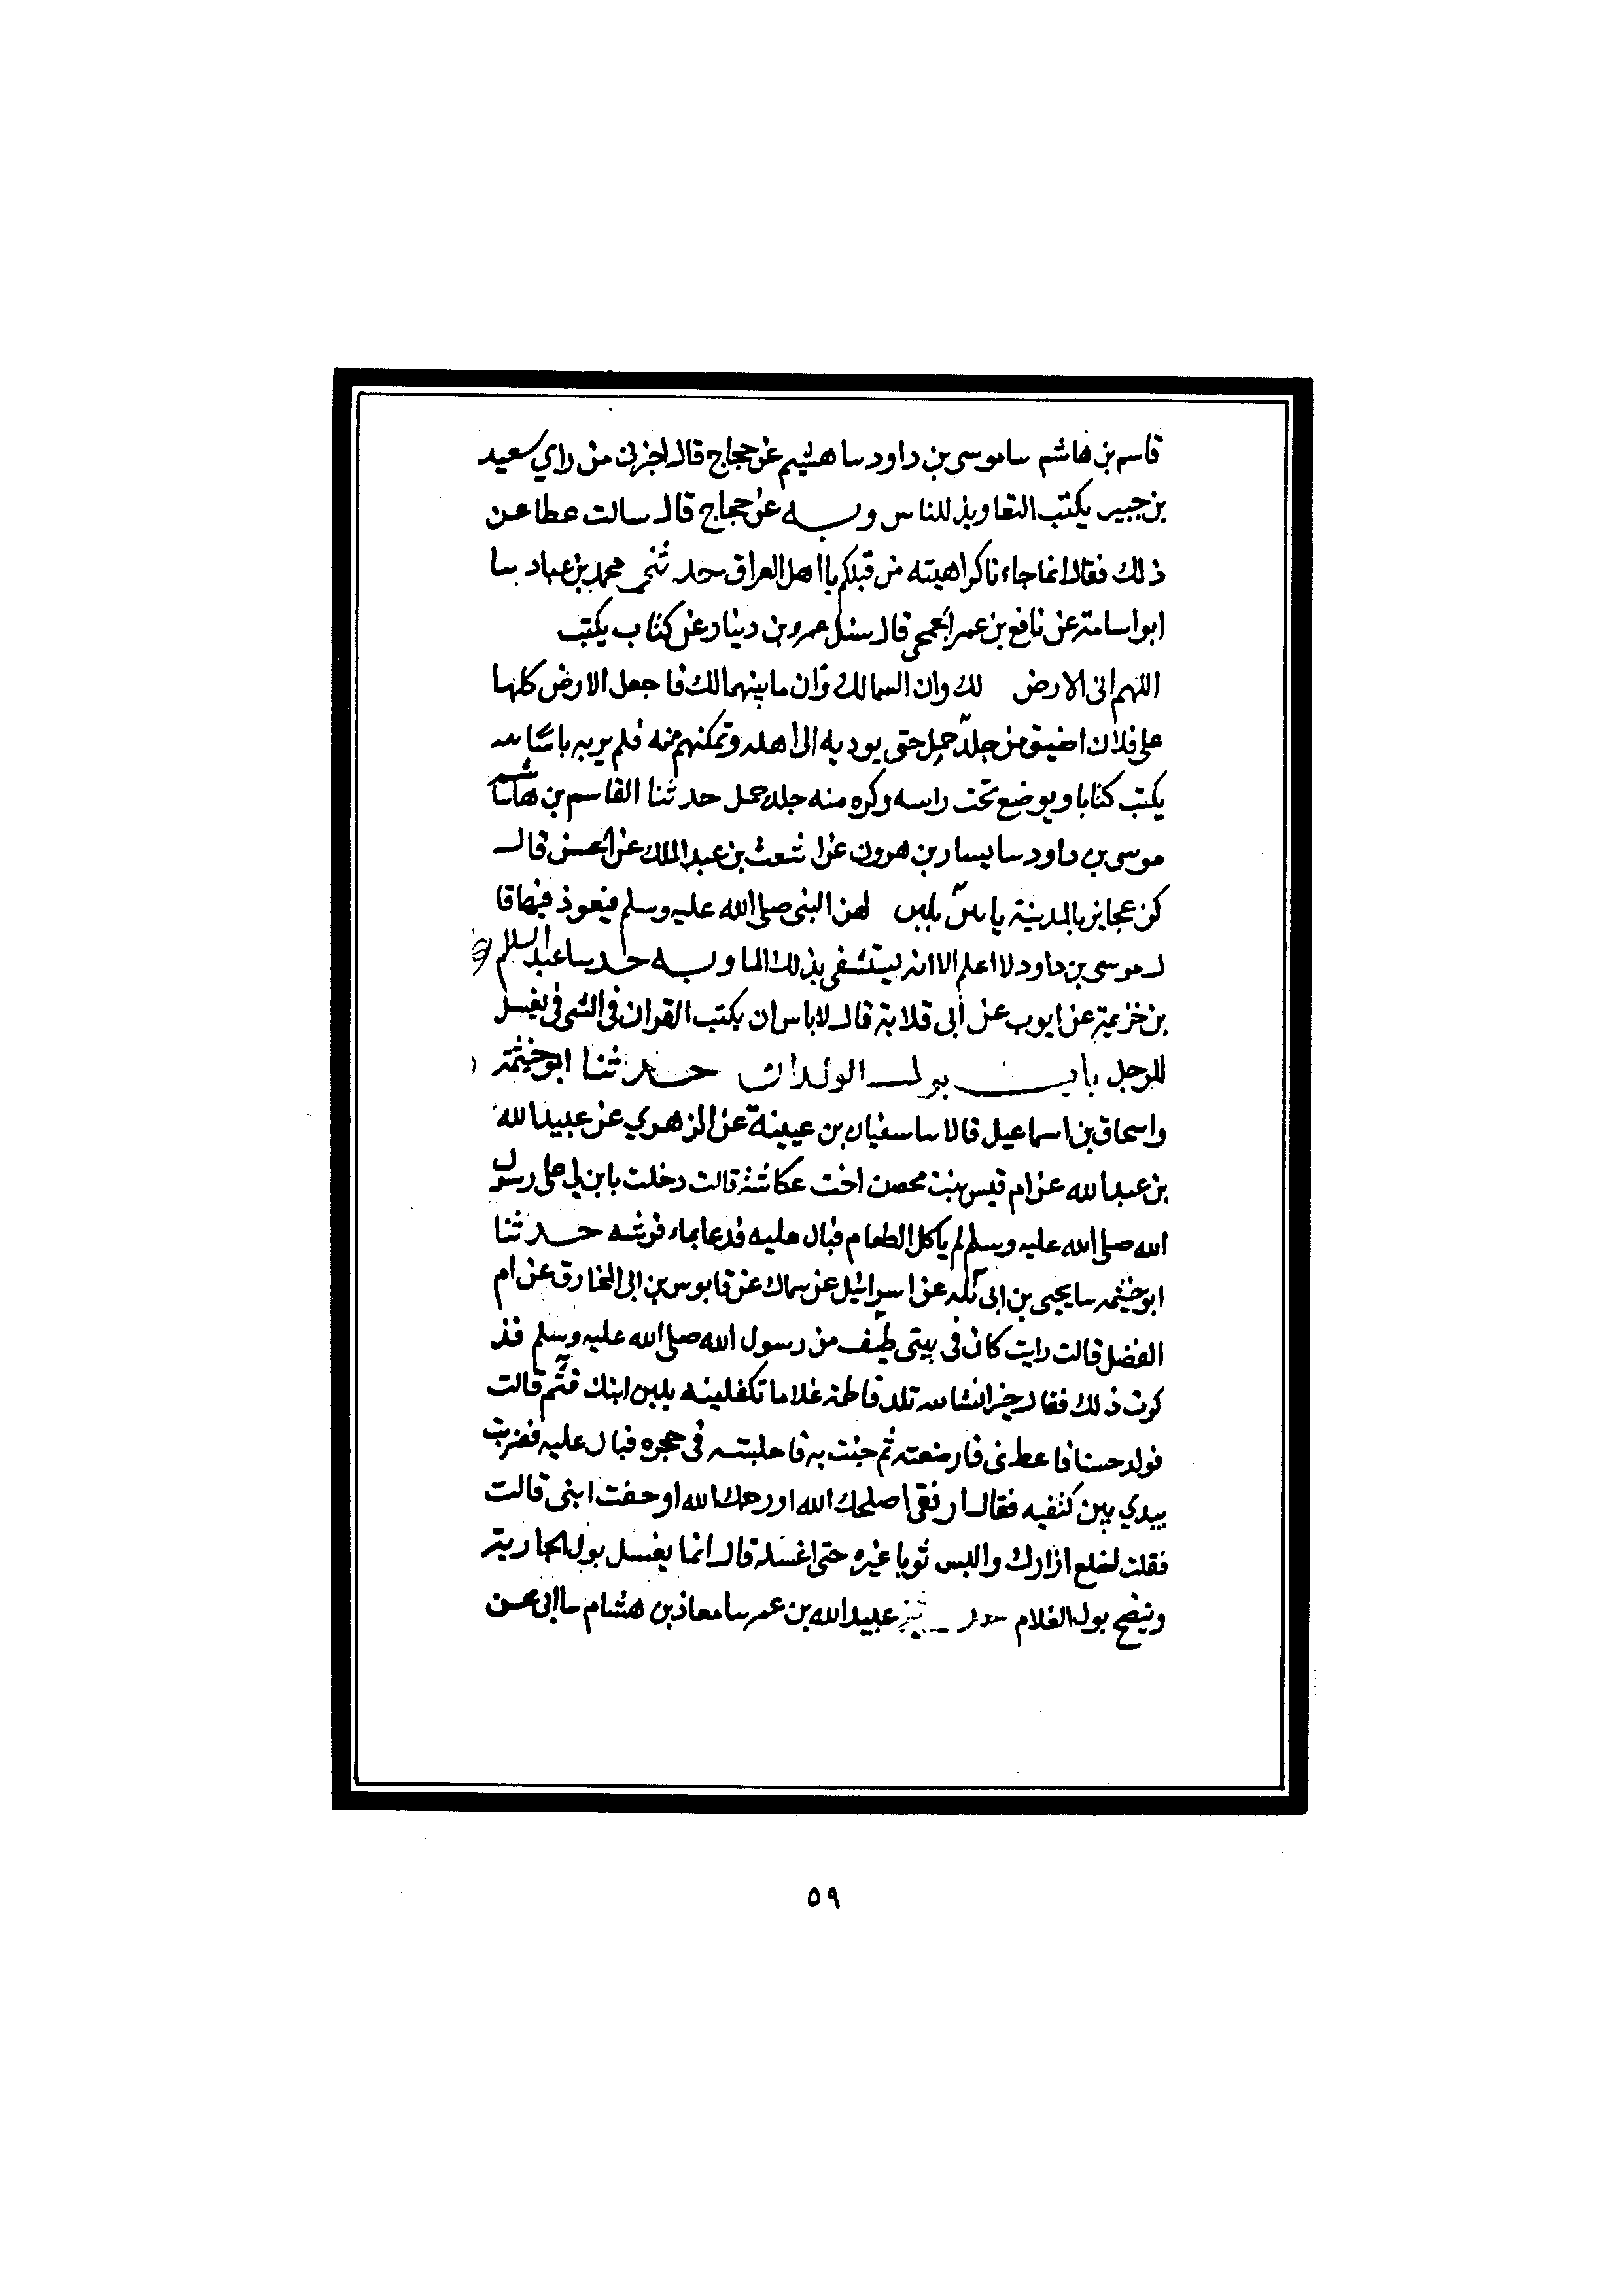 قاسم بن هاشم سا موسى بن داود سا هشيم عن حجاج قال اخبرني من راي سعيد
بن جبير يكتب التعاويذ للناس وبه عن حجاج قال سالت عطا عن
ذلك فقال انما جاءنا كراهيته من قبلكم يا اهل العراق حدثني محمد بن عباد سا
ابو اسامة عن نافع بن عمر الجمحي قال سئل عمرو بن دينار عن كتاب يكتب
اللهم ان الارض لك وان السما لك وان ما بينهما لك فاجعل الارض كلها
على فلان اضيق من جلد جمل حتى يوديه الى اهله وتمكنهم منه فلم ير به باسا
يكتب كتابا ويوضع تحت راسه وكره منه جلد جمل حدثنا القاسم بن هاشم سا
موسى بن داود سا يسار بن هرون عن اشعث بن عبد الملك عن الحسن قال
كن عجايز بالمدينة لهن النبي صلى الله عليه وسلم فيعوذ فيها قا
ل موسى بن داود لا اعلم الا انه ليستشفى بذلك الما وبه حدسا عبد السلم
بن خزيمة عن ايوب عن ابي قلابة قال لا باس ان يكتب القران في الشي في يغسل
للرجل باب بول الولدان حدثنا ابو خيثمة
واسحاق بن اسماعيل قالا سا سفيان بن عيينة عن الزهري عن عبيد الله
بن عبد الله عن ام قيس بنت محصن اخت عكاشة قالت دخلت بابن لي على رسول
الله صلى الله عليه وسلم لم ياكل الطعام فبال عليه فدعا بماء فرشه حدثنا
ابو خيثمه سا يحيى بن ابي بكير عن اسرائيل عن سماك عن قابوس بن ابي المخارق عن ام
الفضل قالت رايت كان في بيتي طيف من رسول الله صلى الله عليه وسلم فذ
كرت ذلك فقال خير انشا الله تلد فاطمة غلاما تكفلينه بلبن ابنك قثم قالت
فولد حسنا فاعطني فارضعته ثم جئت به فاجلسته في حجره فبال عليه فضربت
بيدي بين كتفيه فقال ارفقي اصلحك الله او رحمك الله اوجعت ابني قالت
فقلت اخلع ازارك والبس ثوبا غيره حتى اغسله قال انما يغسل بول الجارية
وينضح بول الغلام عبيد الله بن عمر سا معاذ بن هشام سا ابي عن
٥٩